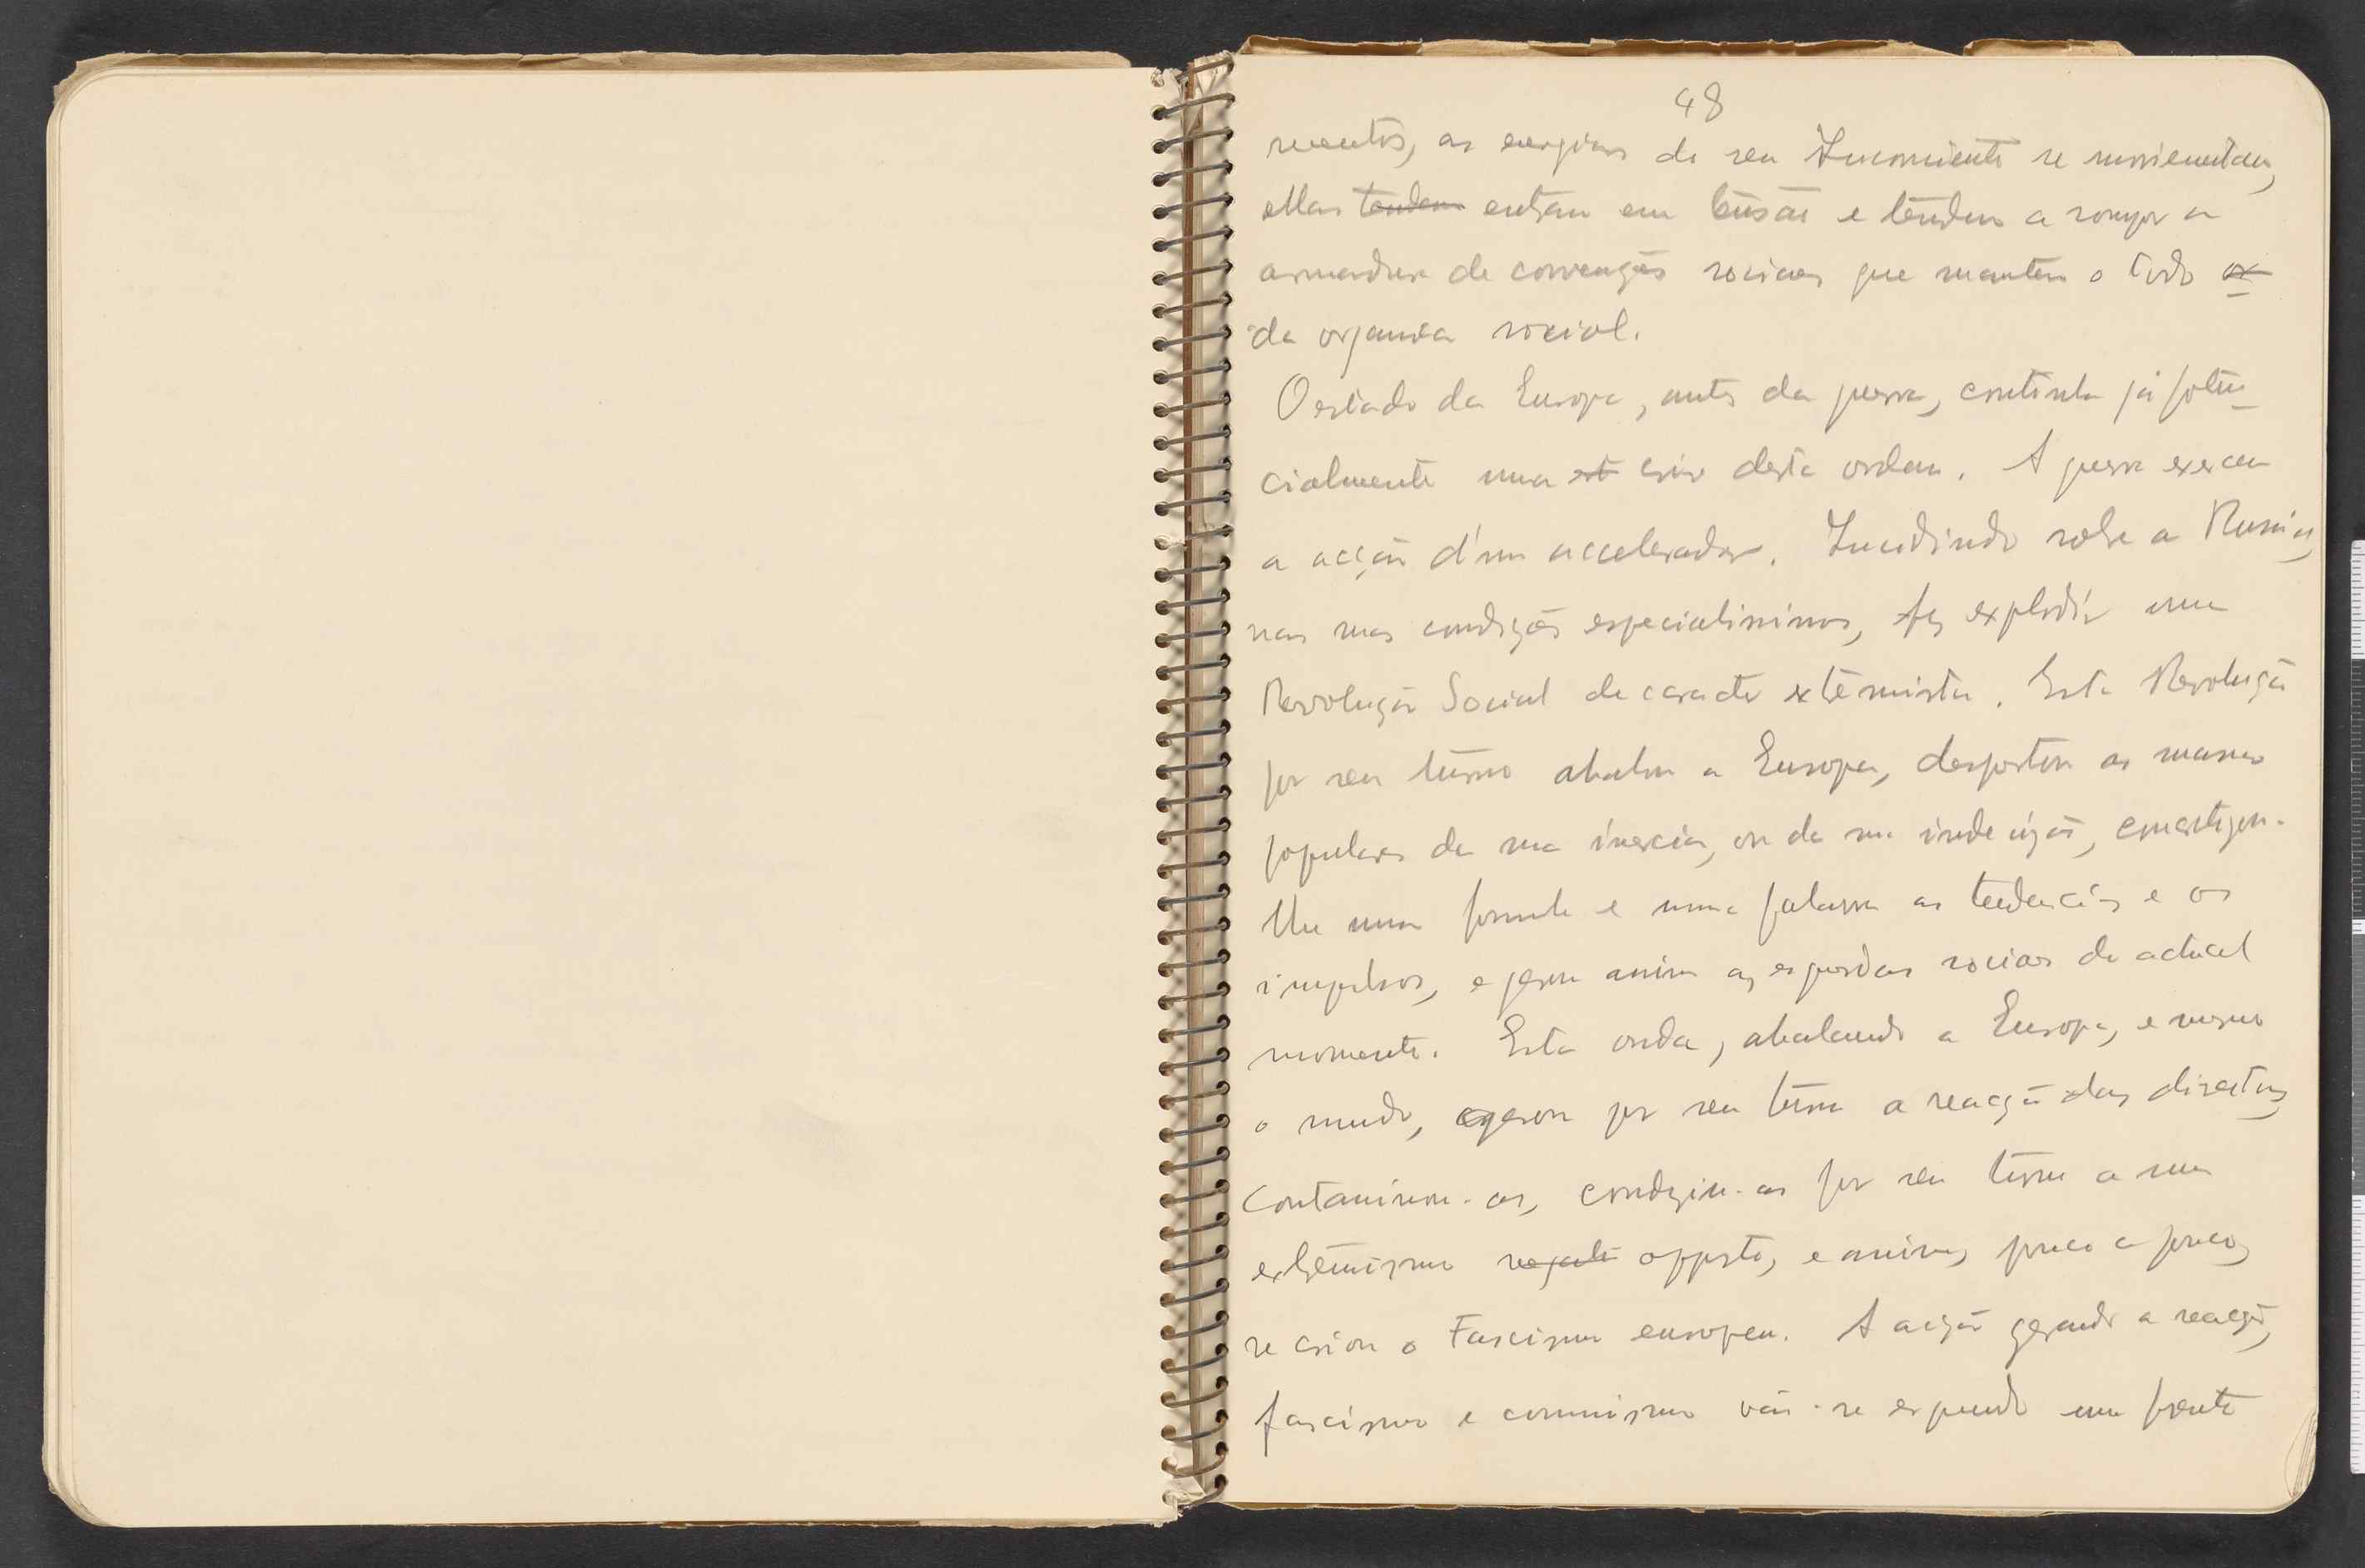 48
mentos, as energias do seu Inconsciente se movimentam,
ellas tendem entram em tensão e tendem a romper a
armadura de convenções sociaes que mantem o todo
da social.
O estado da Europa, antes da guerra, continha já poten-
cialmente uma crise desta ordem. A guerra exerceu
a acção d'um accelerador. Incidindo sobre a Russia,
nas suas condições especialissimas, fez explodir uma
Revolução Social de caracter extremista. Esta Revolução
por seu turno abalou a Europa, despertou as massas
populares da sua inercia, ou da sua indecisão,
lhe numa formula e numa palavra as tendencias e os
impulsos, e gerou assim as esquerdas sociaes do actual
momento. Esta onda, abalando a Europa, e mesmo
o mundo, gerou por seu turno a reacção das direitas,
contaminou-as, conduziu-as por seu turno a um
extremismo opposto, e assim, pouco a pouco,
se criou o Fascismo europeu. A acção gerando a reacção,
fascismo e comunismo vão-se erguendo em frente